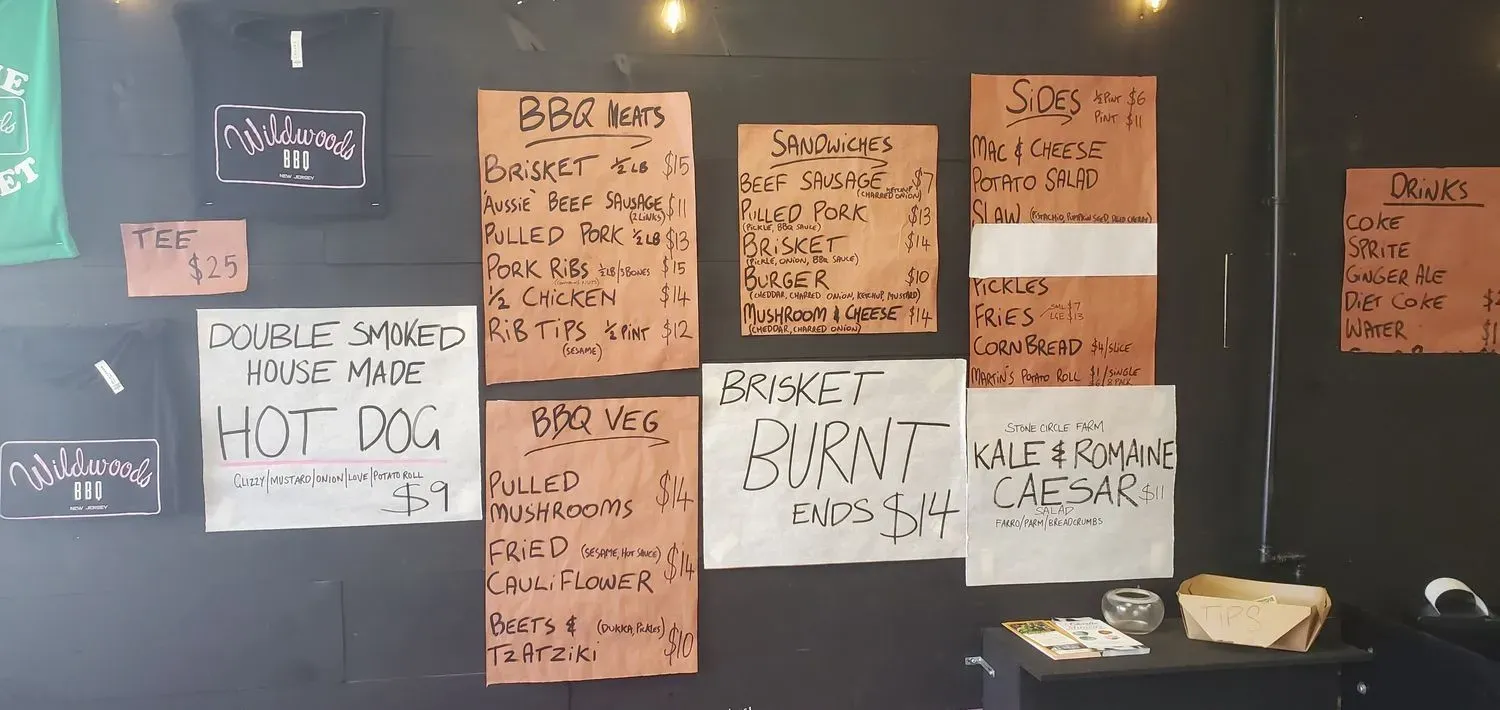 Wildwoods
BBQ
NEW JERSEY
TEE
$25
Wildwoods
BBQ
NEW JERSEY
DOUBLE SMOKED
HOUSE MADE
HOT DOG
GLIZZY/MUSTARD/ONION/LOVE/POTATO ROLL
$9
BBQ MEATS
BRISKET ½ LB $15
'AUSSIE' BEEF SAUSAGE $11
(2 LINKS)
PULLED PORK ½ LB $13
PORK RIBS ½LB/3BONES $15
½ CHICKEN $14
RIB TIPS ½ PINT $12
(SESAME)
BBQ VEG
PULLED
MUSHROOMS $14
FRIED (SESAME, HOT SAUCE)
CAULIFLOWER $14
BEETS & (DUKKA, PICKLES)
TZATZIKI $10
SANDWICHES
BEEF SAUSAGE $7
(CHARRED ONION) KETCHUP
PULLED PORK $13
(PICKLE, BBQ SAUCE)
BRISKET $14
(PICKLE, ONION, BBQ SAUCE)
BURGER $10
(CHEDDAR, CHARRED ONION, KETCHUP, MUSTARD)
MUSHROOM & CHEESE $14
(CHEDDAR, CHARRED ONION)
BRISKET
BURNT
ENDS $14
SIDES ½ PINT $6
PINT $11
MAC & CHEESE
POTATO SALAD
SLAW (PISTACHIO, PUMPKIN SEED, DRIED CHERRY)
PICKLES
FRIES SML $7
LGE $13
CORN BREAD $4/SLICE
MARTIN'S POTATO ROLL $1/SINGLE
8 PACK
STONE CIRCLE FARM
KALE & ROMAINE
CAESAR $11
SALAD
FARRO/PARM/BREADCRUMBS
DRINKS
COKE
SPRITE
GINGER ALE
DIET COKE
WATER
TIPS